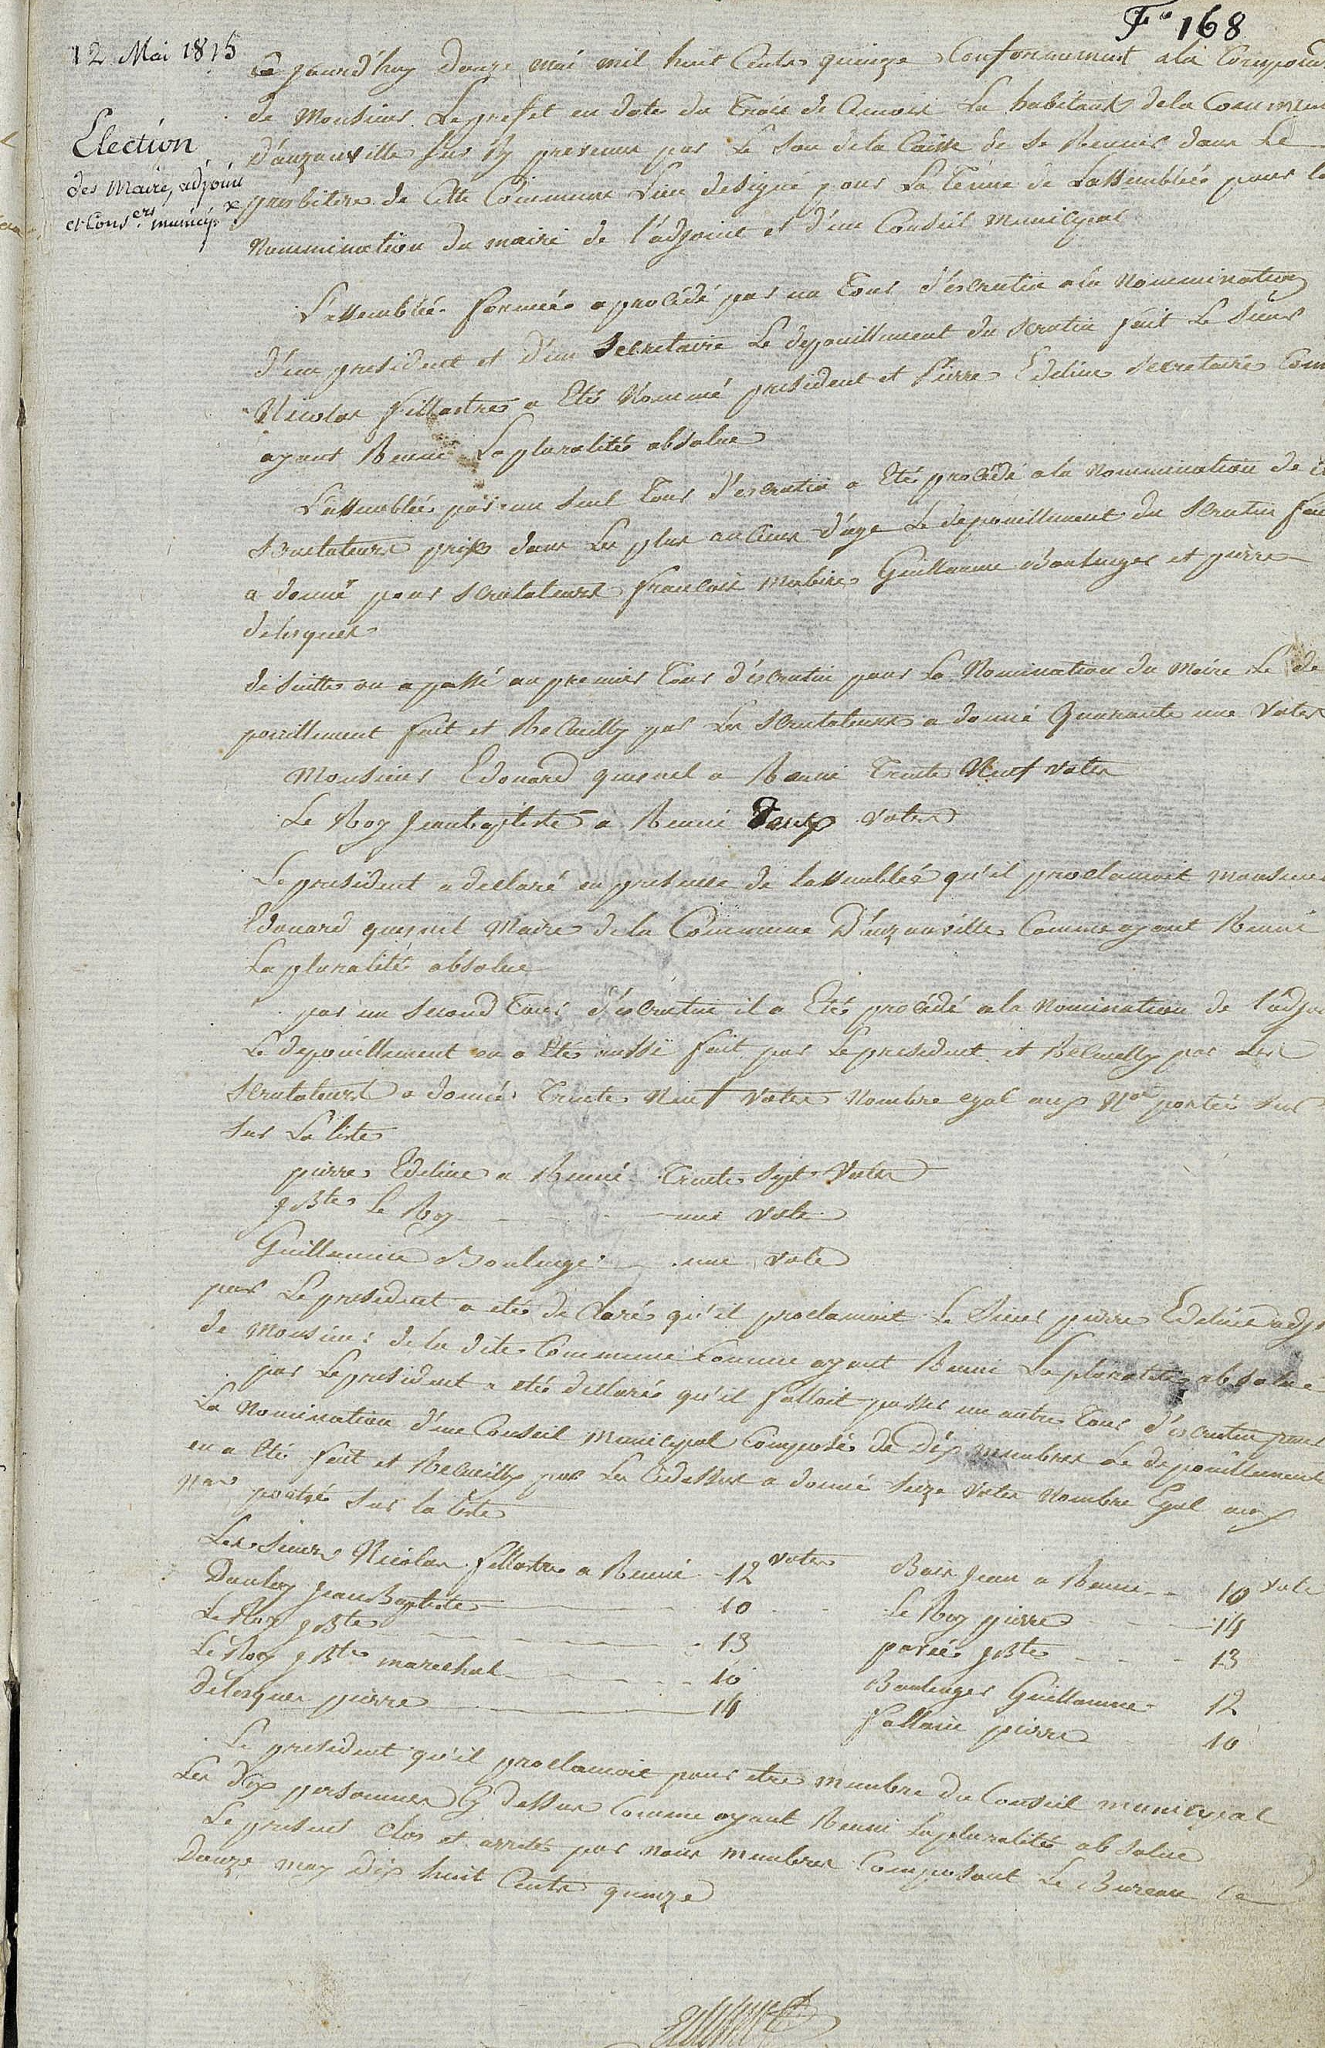 Fo 168
12 Mai 1815
Election
des Maire, adjoint
et Conser municip x
Ce jourd'huy douze mai mil huit Cents quinze Conformement ala
de Monsieur Le prefet en date du trois de Cemois La habitans dela Commune
D'auzouville par Le Son dela Caisse de Se Reunir dans Le
presbitere de Cette Commune Lieu designé pour La tenue de Lassemblée pour la
Nommination du maire de l'adjoint et d'un Conseil Municipal
L'assemblée formée a procédé par un tour d'escrutin ala Nommination
d'un president et d'un Secretaire Le depouillement du scrutin fait Le Sieur
Nicolas fillastre a Eté Nommé president et Pierre Edeline Secretaire Comme
ayant Reuni La pluralité absolue
L'assemblée par un seul tour d'escrutin a Eté procédé ala Nommination de
scrutateurs prix dans Les plus anciens d'age Le depouillement du scrutin fait
a donné pour scrutateurs francois mabire Guillaume Boulenger et pierre
delesques
de suitte on a passé au premier tour d'escrutin pour La Nomination du Maire Le de
pouillement fait et Recueilly par Les scrutateurs a donné Quarante une Votes
Monsieur Edouard quesnel a Reuni trente Neuf votes
Le Roy Jeanbaptiste a Reuni Deux votes
Le president a declaré en presence de Lassemblée qu'il proclamoit monsieur
Edouard quesnel Maire dela Commune D'auzouville Comme ayant Reuni
La pluralité absolue
par un second tour d'escrutin il a Eté procédé ala Nomination de l'adjoi
Le depouillement en a Eté aussi fait par Le president et Recueilly par Les
scrutateurs a donné trente Neuf votes Nombre egal aux Noms portés sur
sur La liste
pierre Edeline a Reuni trente Sept Votes
J Bte Le Roy une vote
Guillaume Boulenger une vote
par Le president a eté declaré qu'il proclamoit Le Sieur pierre Edeline adjoi
de Monsieur de la dite Commune Comme ayant Reuni La pluralité absolue
par Le president a eté declaré qu'il falloit passer un autre tour d'escrutin pour
La Nomination d'un Conseil Municipal Composé de dix membres Le depouillement
en a Eté fait et Recueilly par Les Cidessus a donné Seize votes Nombre Egal aux
Nos portés sur la liste
Les Sieurs Nicolas fillastre a Reuni 12 votes Jean a Reuni 10 vote
Jean Baptiste 10 Le Roy pierre 14
Le Roy J Bte 13 J Bte 13
Le Roy J Bte marechal 10 Boulenger Guillaume 12
delesques pierre 14 pierre 10
Le president qu'il proclamoit pour etre membre du Conseil municipal
Les dix personnes Cy dessus Comme ayant Reuni La pluralité absolue
Le present Clos et arreté par nous membres Composant Le Bureau Ce
Douze may dix huit Cents quinze